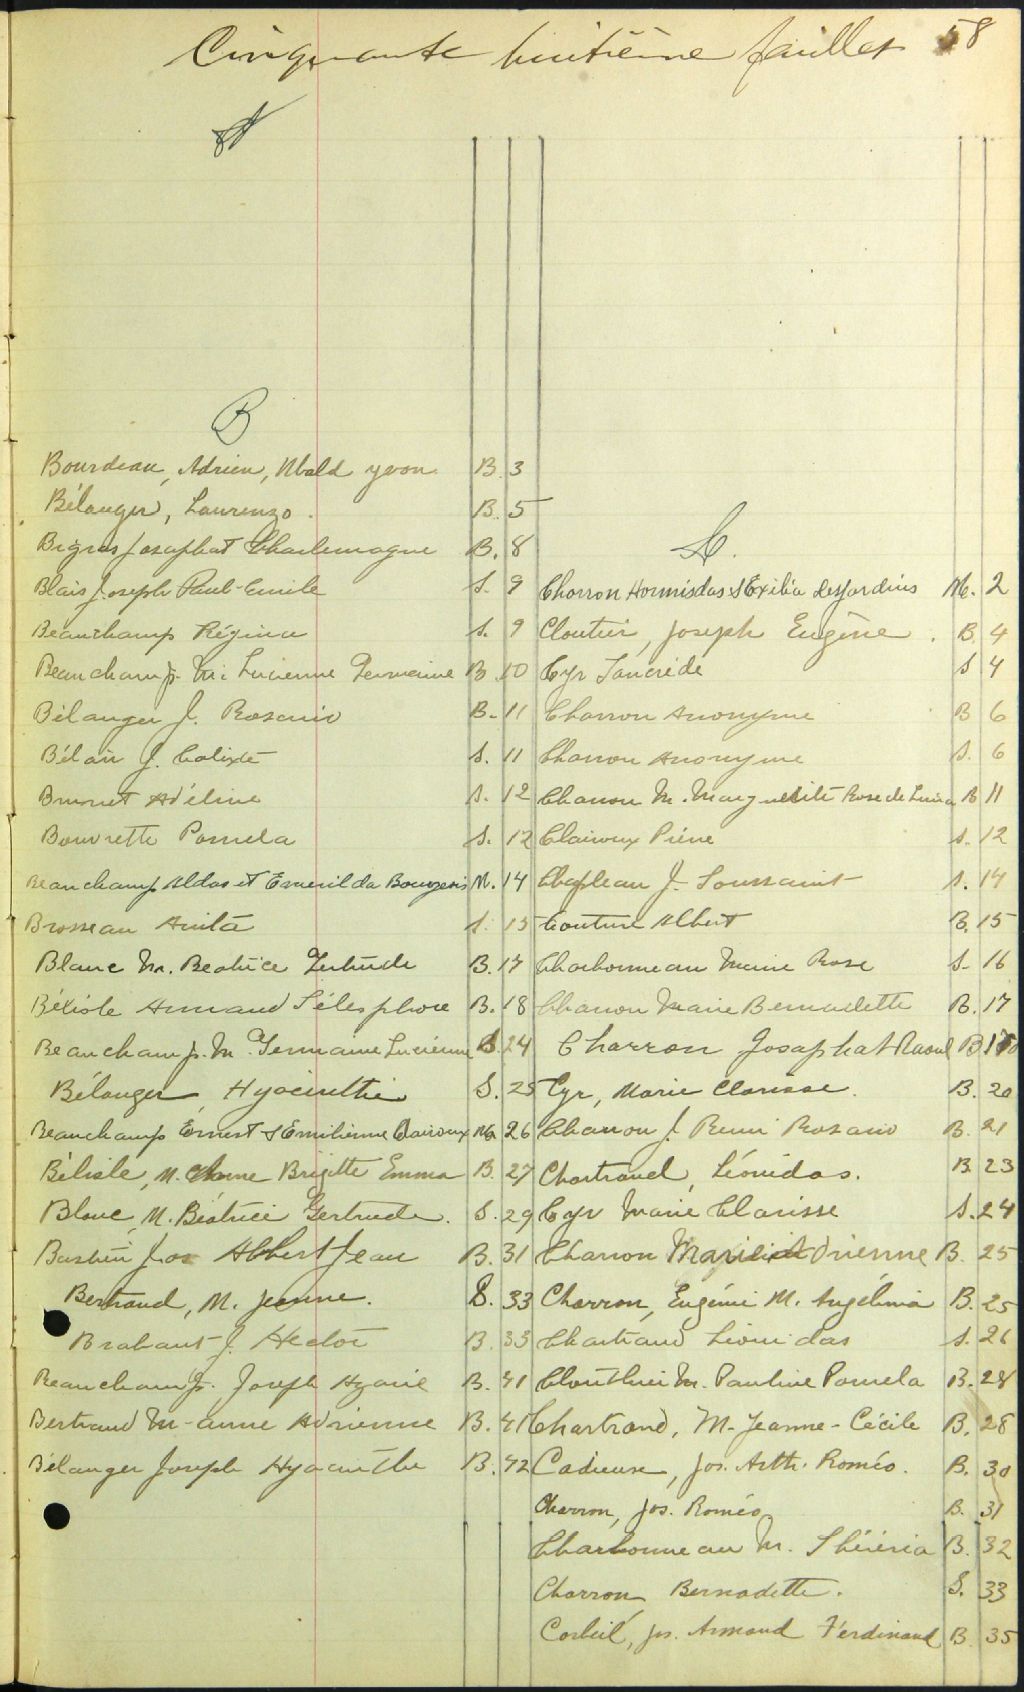 Cinquante huitième feuillet 58
A
B
Bourdeau, Adrien, Ubald yvon B. 3
Bélanger, Laurenzo. B. 5
Bigras Josaphat Charlemagne B. 8
Blais Joseph Paul-Emile S. 9
Beauchamp Régina S. 9
Beauchamp M. Lucienne Germaine B. 10
Bélanger J. Rosario B. 11
Bélair J. Calixte S. 11
Brunet Adéline S. 12
Bouvrette Pomela S. 12
Beauchamp Aldas et Esmerilda Bourgeois M. 14
Brosseau Anita S. 15
Blanc M. Beatrice Gertrude B. 17
Bélisle Armand Télesphore B. 18
Beauchamp M. Germaine Lucienne S. 24
Bélanger, Hyacinthe S. 25
Beauchamp Ernest & Emilienne Clairoux M. 26
Bélisle, M. Anne Brigitte Emma B. 27
Blanc, M. Béatrice Gertrude. S. 29
Bastien Jos Albert Jean B. 31
Bertrand, M. Jeanne. S. 33
Brabant J. Hector B. 33
Beauchamp Joseph B. 41
Bertrand M-anne Adrienne B. 41
Bélanger Joseph Hyacinthe B. 42
C.
Charron Hormisdas & Exilia Desjardins M. 2
Cloutier, Joseph Eugène. B. 4
Cyr Tancrède S 4
Charron Anonyme B 6
Charron Anonyme S. 6
Charron M. Marguerite Rose de Lima B 11
Clairoux Pierre S. 12
Chapleau J. Toussaint S. 14
Couture Albert B. 15
Charbonneau Marie Rose S. 16
Charron Marie Bernadette B. 17
Charron Josaphat Raoul B
Cyr, Marie Clarisse. B. 20
Charron J. Remi Rosario B. 21
Chartrand, Léonidas. B. 23
Cyr Marie Clarisse S. 24
Charron Marie Adrienne B. 25
Charron, Eugénie M. Angélina B. 25
Chartrand Léonidas S. 26
Clouthier M. Pauline Pomela B. 28
Chartrand, M-Jeanne-Cécile B. 28
Cadieux, Jos. Arth. Roméo. B. 30
Charron, Jos. Roméo B. 31
Charbonneau M. B. 32
Charron Bernadette. S. 33
Corbeil, Jos. Armand Ferdinand B. 35